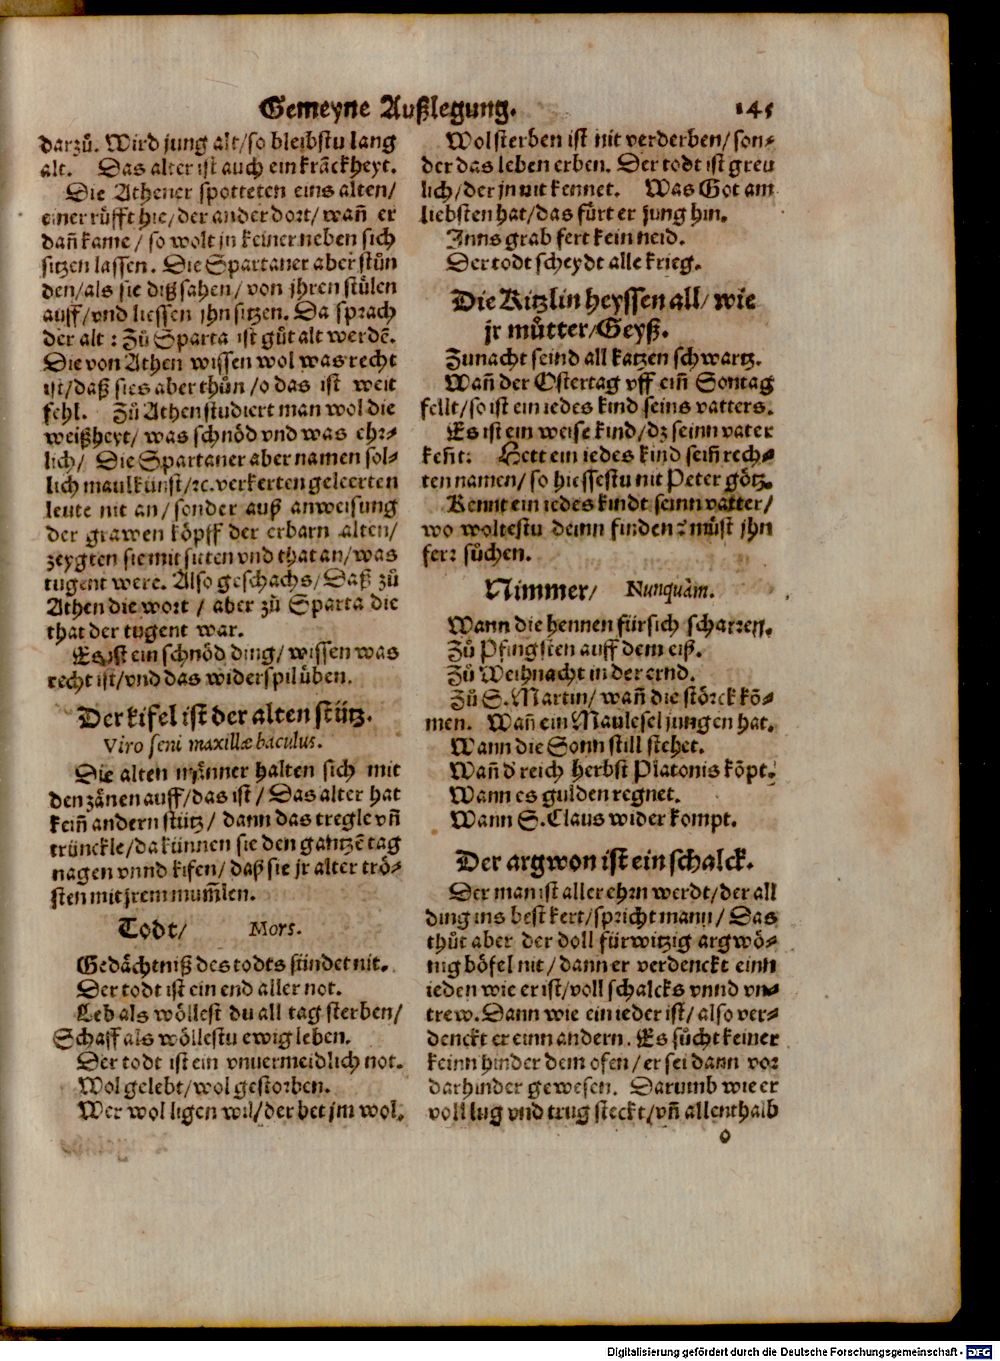 Gemeyne Außlegung. 145
darzů. Wird jung alt/so bleibstu lang
alt. Das alter ist auch ein kräckheyt.
Die Athener spotteten eins alten/
einer rüfft hie/der ander dort/wañ er
dañ kame/so wolt jn keiner neben sich
sitzen lassen. Die Spartaner aber stůn
den/als sie diß sahen/von jhren stülen
auff/vnd liessen jhn sitzen. Da sprach
der alt: Zů Sparta ist gůt alt werdẽ.
Die von Athen wissen wol was recht
ist/daß sies aber thůn/o das ist weit
fehl. Zů Athen studiert man wol die
weißheyt/was schnöd vnd was ehr⸗
lich/ Die Spartaner aber namen sol⸗
lich maulkunst/ꝛc. verkerten geleerten
leute nit an/sonder auß anweisung
der grawen köpff der erbarn alten/
zeygten sie mit sitten vnd that an/was
tugent were. Also geschachs/Daß zů
Athen die wort/aber zů Sparta die
that der tugent war.
Es ist ein schnöd ding/wissen was
recht ist/vnd das widerspil üben.
Der kifel ist der alten stütz.
Viro seni maxillæ baculus.
Die alten männer halten sich mit
den zänen auff/das ist/Das alter hat
keiñ andern stütz/dann das tregle vñ
trünckle/da künnen sie den gantzẽ tag
nagen vnnd kifen/daß sie jr alter trö⸗
sten mit jrem mum̃len.
Todt/ Mors.
Gedächtniß des todts sündet nit.
Der todt ist ein end aller not.
Leb als wöllest du all tag sterben/
Schaff als wöllestu ewig leben.
Der todt ist ein vnuermeidlich not.
Wol gelebt/wol gestorben.
Wer wol ligen wil/der bet jm wol.
Wol sterben ist nit verderben/son⸗
der das leben erben. Der todt ist greu
lich/der jn nit kennet. Was Got am
liebsten hat/das fürt er jung hin.
Inns grab fert kein neid.
Der todt scheydt alle krieg.
Die Kitzlin heyssen all/wie
jr můtter/Geyß.
Zunacht seind all katzen schwartz.
Wañ der Ostertag vff eiñ Sontag
fellt/so ist ein iedes kind seins vatters.
Es ist ein weise kind/dz seinn vater
keñt: Hett ein iedes kind seiñ rech⸗
ten namen/so hiessestu nit Peter götz.
Kennt ein iedes kindt seinn vatter/
wo woltestu deinn finden? můst jhn
ferr sůchen.
Nimmer/ Nunquàm.
Wann die hennen fürsich scharren.
Zů Pfingsten auff dem eiß.
Zů Weihnacht in der ernd.
Zů S. Martin/wañ die störck kõ⸗
men. Wañ ein Maulesel jungen hat.
Wann die Sonn still stehet.
Wañ d' reich herbst Platonis kõpt.
Wann es gulden regnet.
Wann S. Claus wider kompt.
Der argwon ist ein schalck.
Der man ist aller ehrn werdt/der all
ding ins best kert/spricht mann/Das
thůt aber der doll fürwitzig argwö⸗
nig böfel nit/dann er verdenckt einn
ieden wie er ist/voll schalcks vnnd vn⸗
trew. Dann wie ein ieder ist/also ver⸗
denckt er einn andern. Es sůcht keiner
keinn hinder dem ofen/er sei dann vor
darhinder gewesen. Darumb wie er
voll lug vnd trug steckt/vñ allenthalb
o
Digitalisierung gefördert durch die Deutsche Forschungsgemeinschaft - DFG